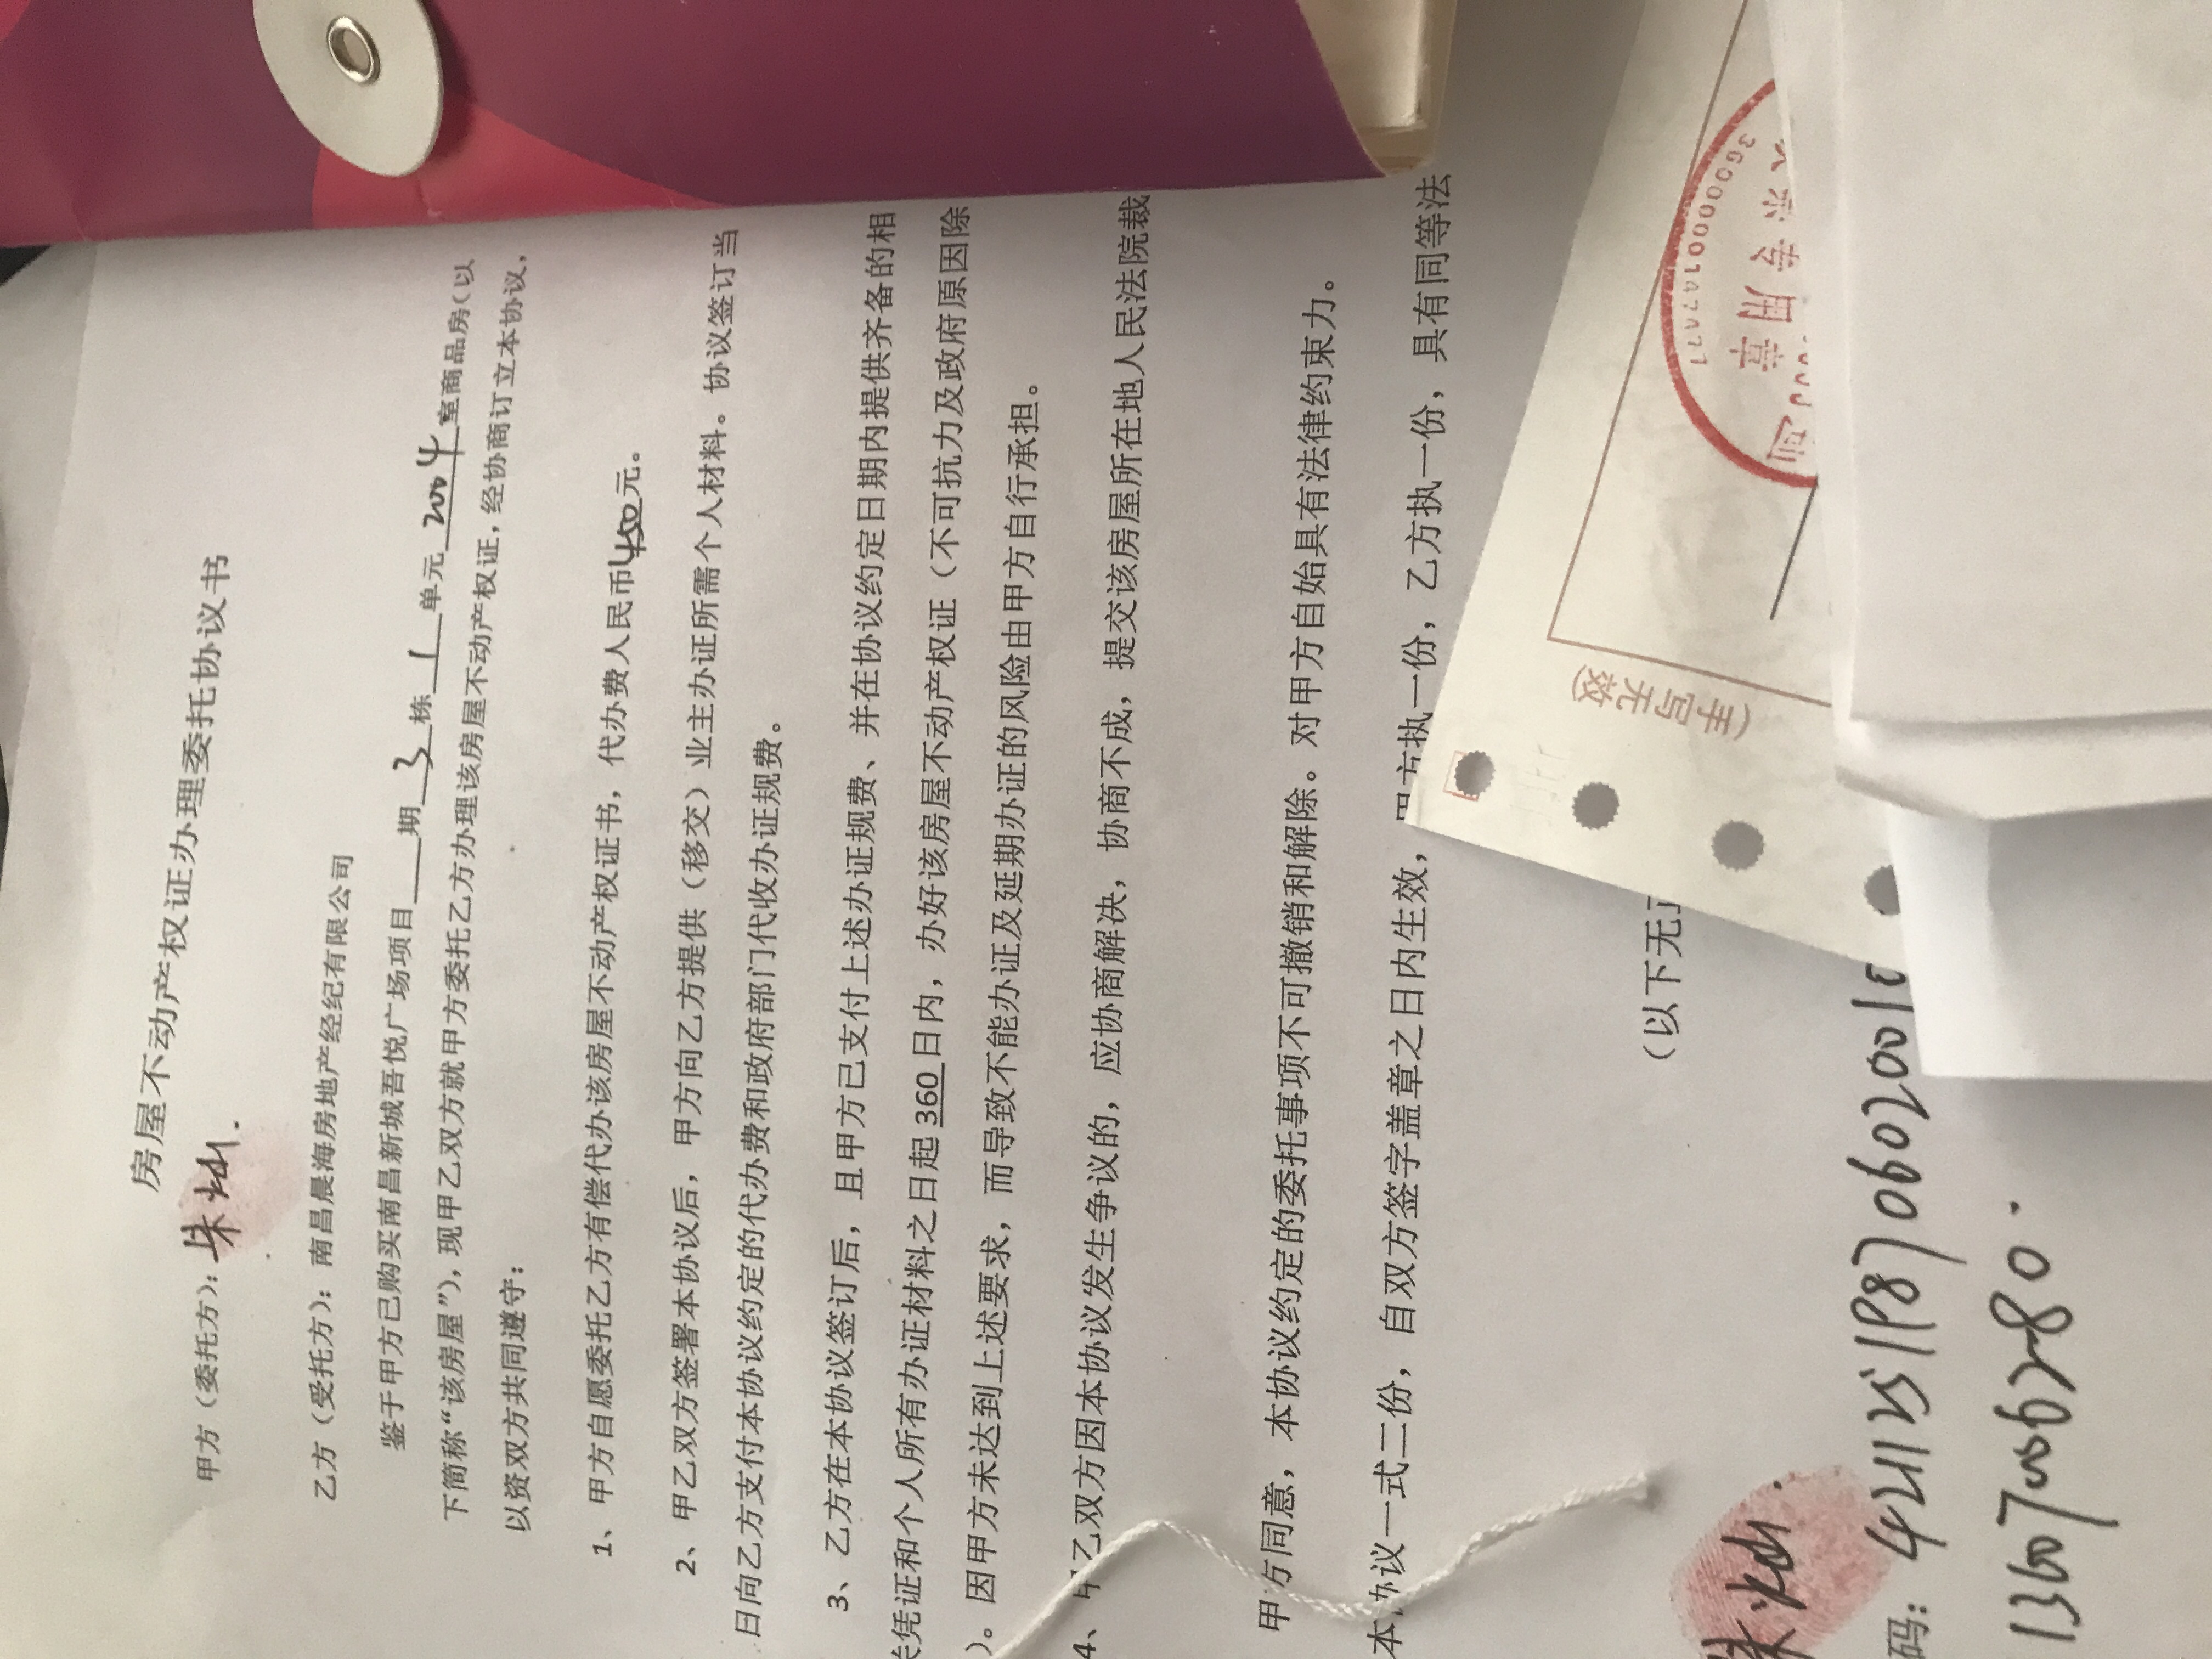 房屋不动产权证办理委托协议书
甲方（委托方）：朱灿.
乙方（受托方）：南昌晨海房地产经纪有限公司
鉴于甲方已购买南昌新城吾悦广场项目____期 3 栋 1 单元 2004 室商品房（以
下简称“该房屋”），现甲乙双方就甲方委托乙方办理该房屋不动产权证，经协商订立本协议，
以资双方共同遵守：
1、甲方自愿委托乙方有偿代办该房屋不动产权证书，代办费人民币450元。
2、甲乙双方签署本协议后，甲方向乙方提供（移交）业主办证所需个人材料。协议签订当
日向乙方支付本协议约定的代办费和政府部门代收办证规费。
3、乙方在本协议签订后，且甲方已支付上述办证规费、并在协议约定日期内提供齐备的相
关凭证和个人所有办证材料之日起 360 日内，办好该房屋不动产权证（不可抗力及政府原因除
）。因甲方未达到上述要求，而导致不能办证及延期办证的风险由甲方自行承担。
4、甲乙双方因本协议发生争议的，应协商解决，协商不成，提交该房屋所在地人民法院裁
甲方同意，本协议约定的委托事项不可撤销和解除。对甲方自始具有法律约束力。
本协议一式二份，自双方签字盖章之日内生效，甲方执一份，乙方执一份，具有同等法
（以下无正
朱灿.
码：42112519870602001
13607006280.
（手写无效）
3600000147477
专用章